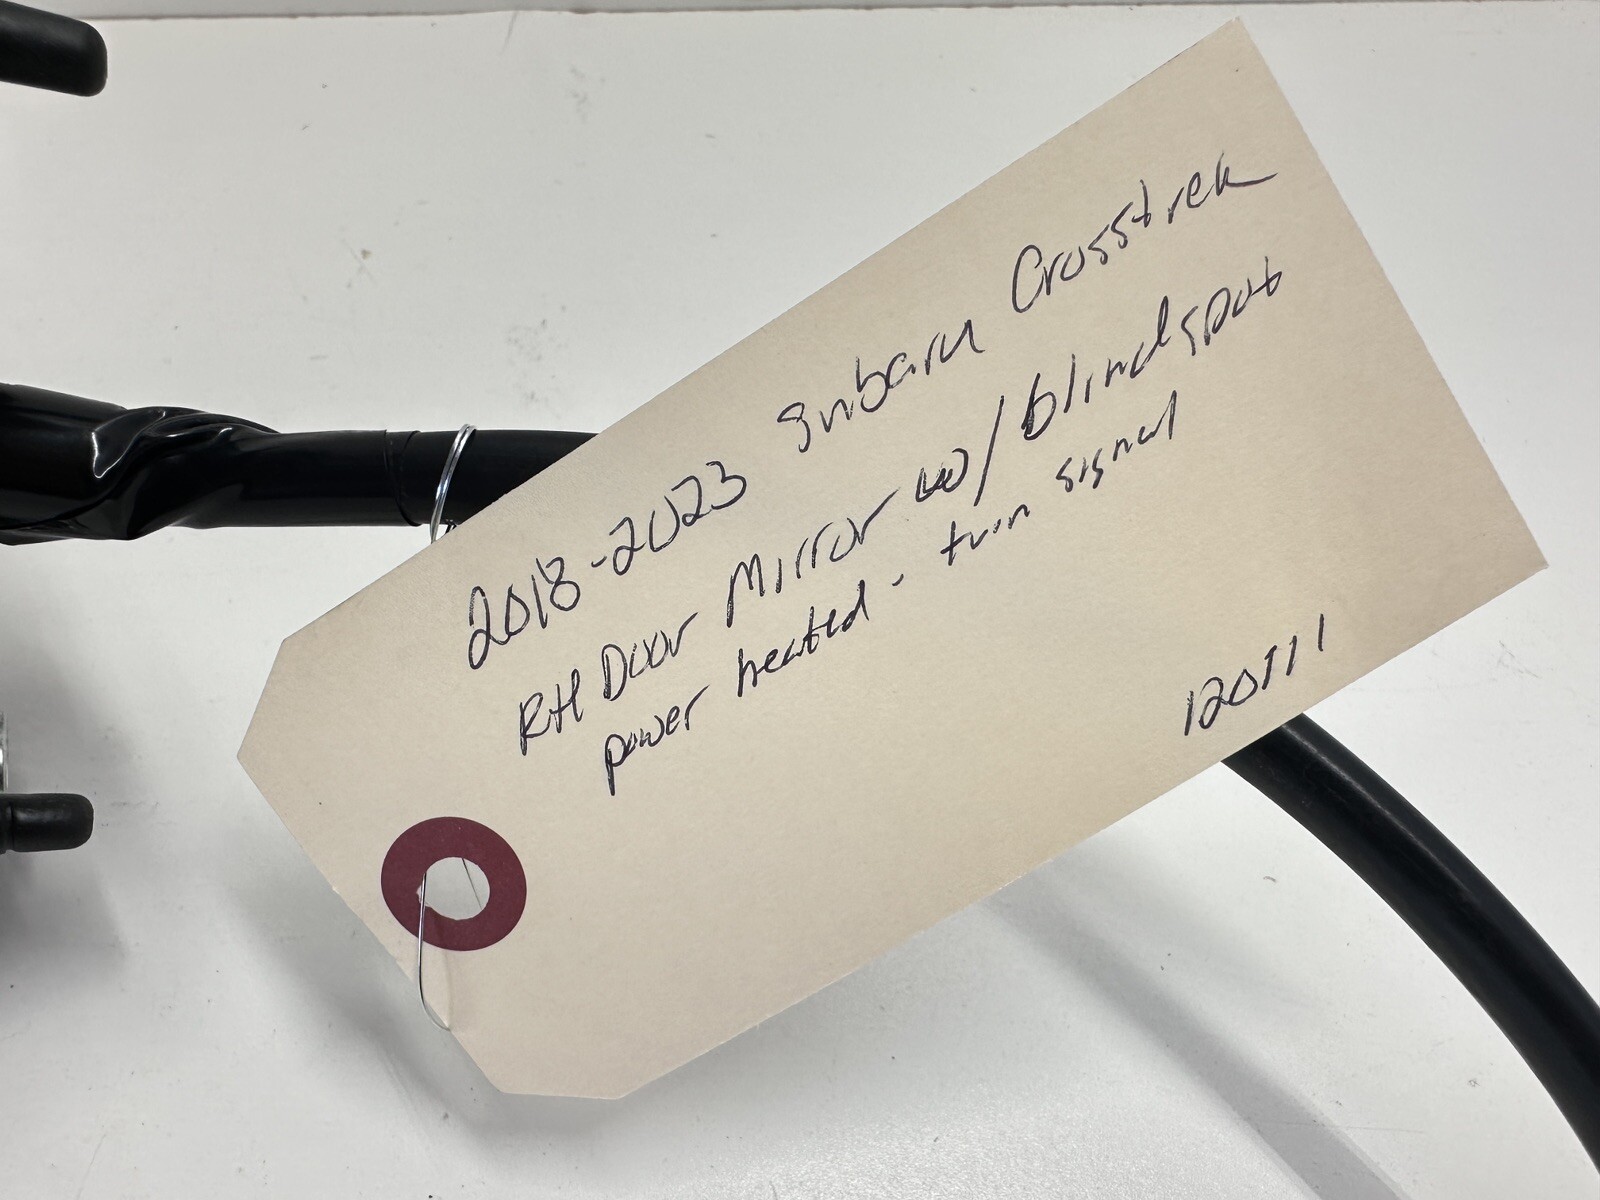 2018-2023 Subaru Crosstrek
RH Door Mirror w/blindspot
power heated - turn signal
120J11